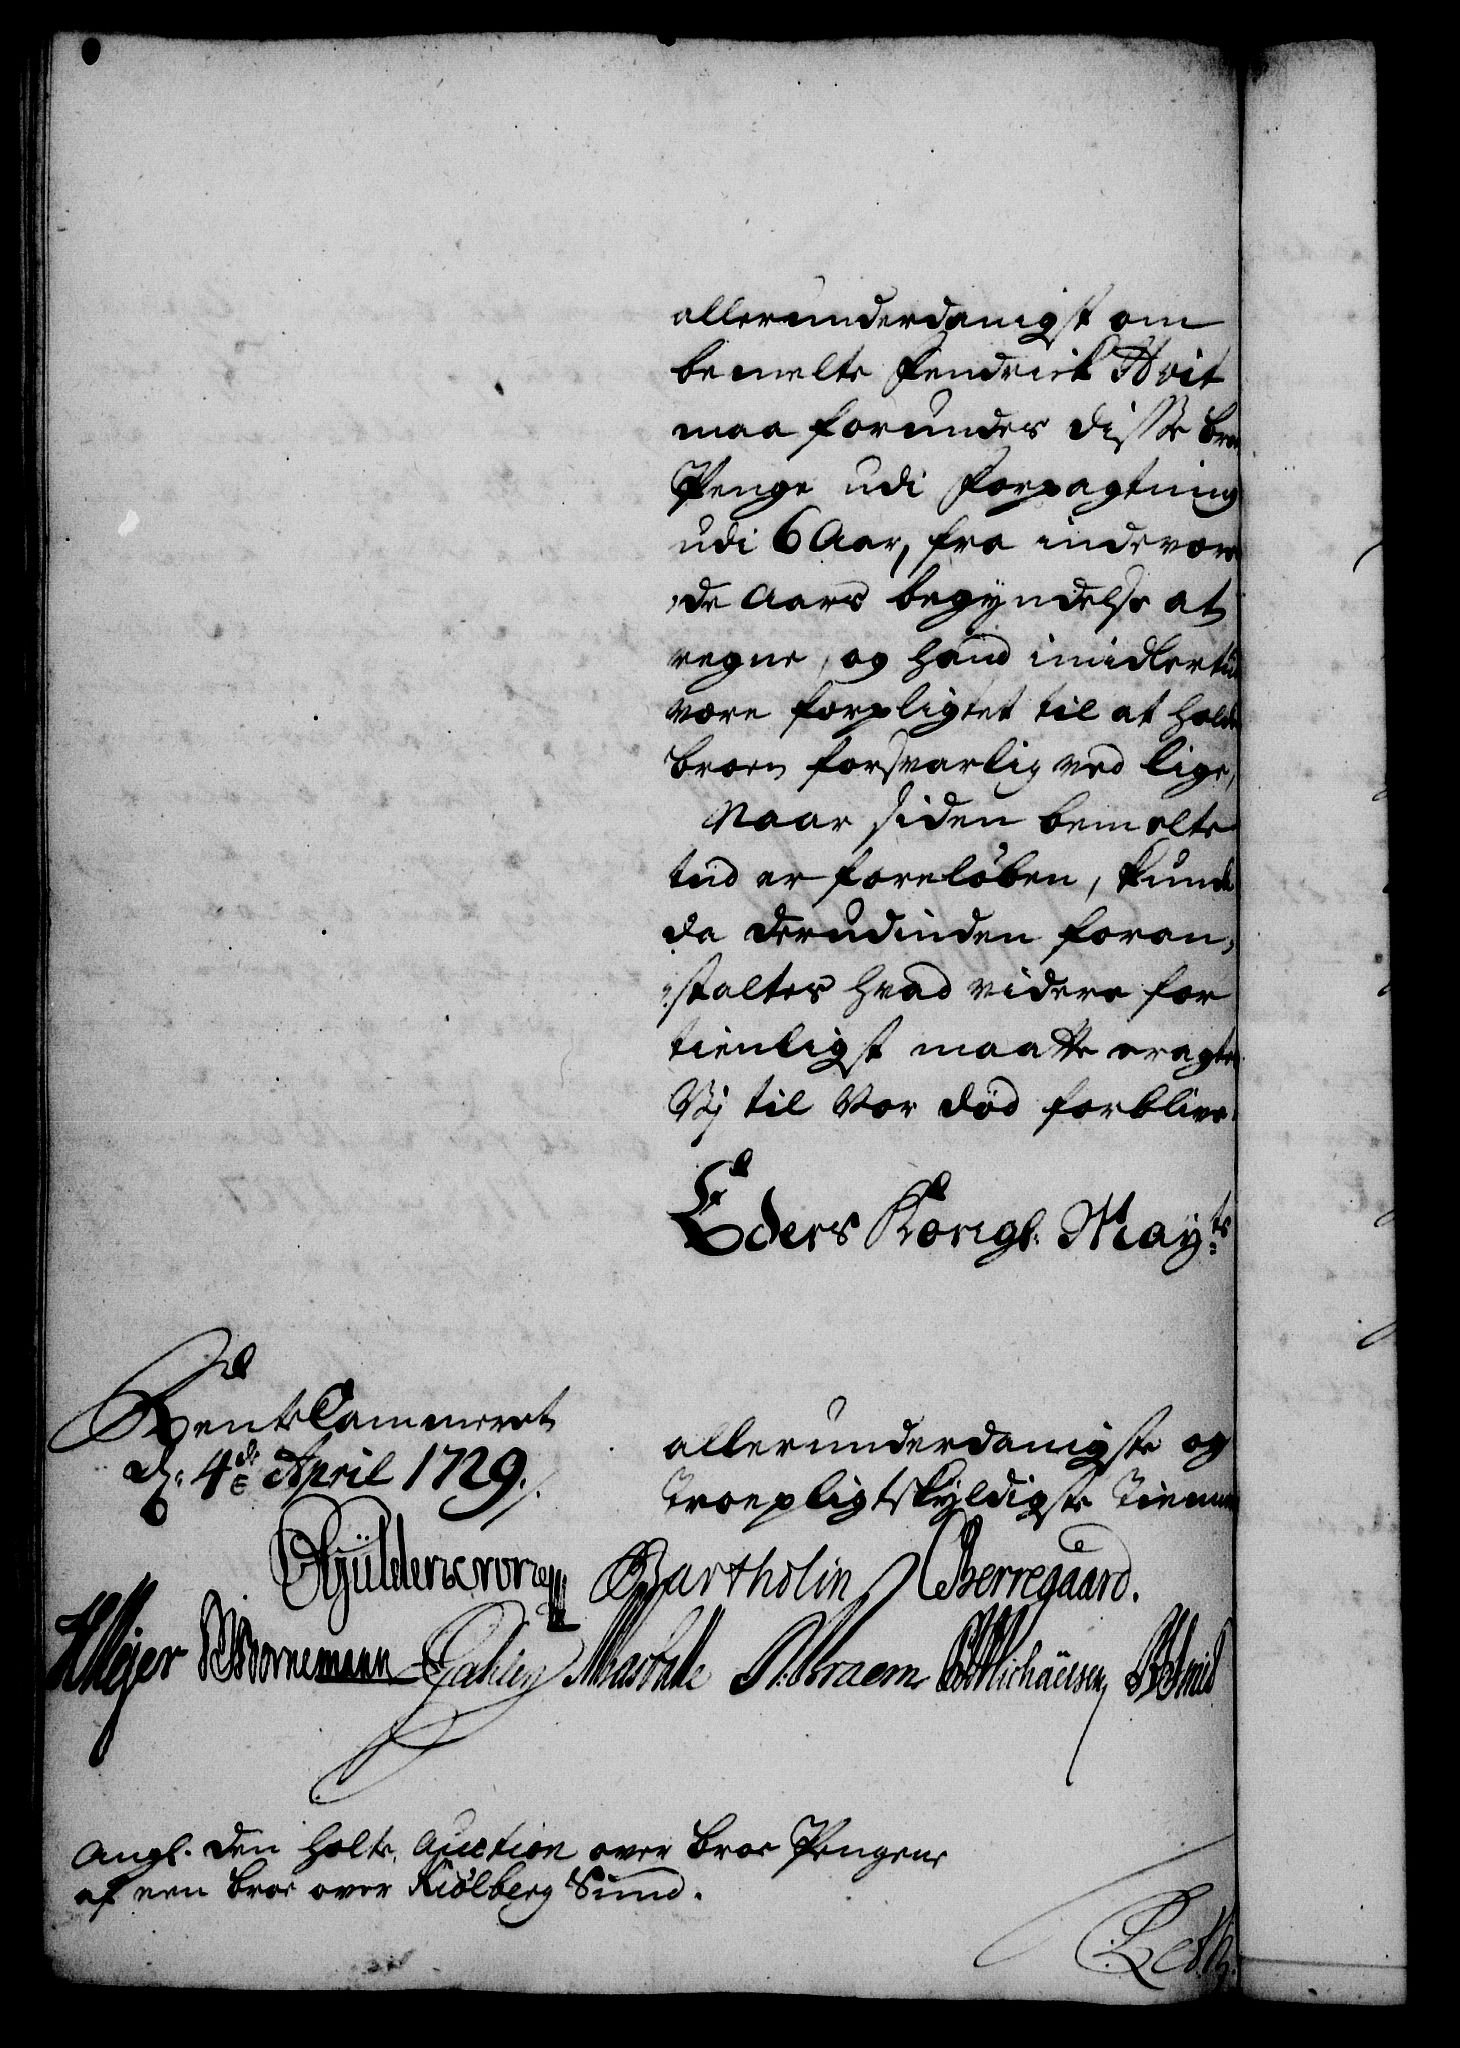 allerunderdanigst om
bemelte Fendrick Hvit
maa forundes disse broe
Penge udi Forpagtning
udi 6 Aar, fra indeværen
de Aars begyndelse at
regne, og hand imidlertiid
være forpligtet til at holde
broen forsvarlig ved lige,
Naar siden bemelte
tiid er foreløben, kunde
da derudinden foran,
staltes hvad videre for
tienligst maatte eragtes
Vj til Vor død forblive.
Eders Kongl: Mayts
RenteCammeret
d: 4de April 1729.
allerunderdanigste og
Troepligtskyldigste Tienere
Gyldencrone Bartholin Berregaard.
HMejer Bornemann Braem
Angl. den holte Auction over broe Pengene
af een broe over Kiølberg Sund.